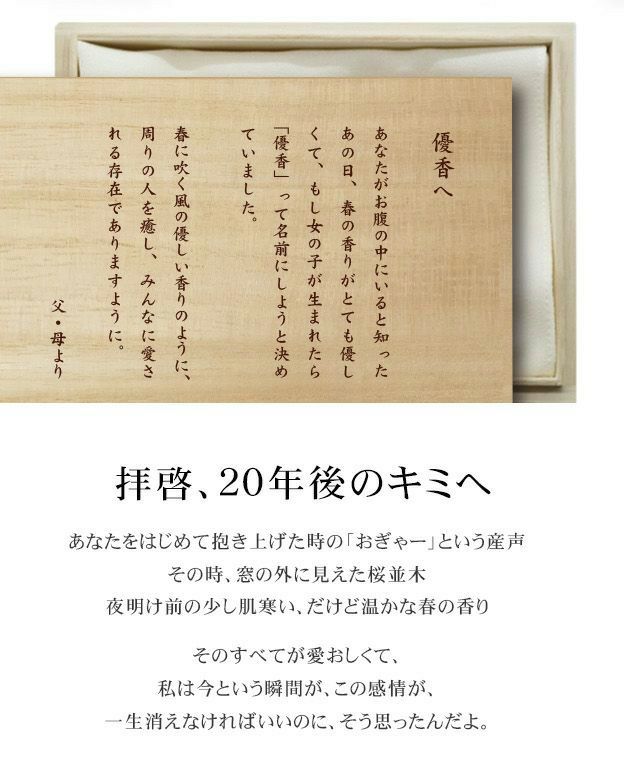 優香へ
あなたがお腹の中にいると知った
あの日、春の香りがとても優し
くて、もし女の子が生まれたら
「優香」って名前にしようと決め
ていました。
春に吹く風の優しい香りのように、
周りの人を癒し、みんなに愛さ
れる存在でありますように。
父・母より
拝啓、20年後のキミへ
あなたをはじめて抱き上げた時の「おぎゃー」という産声
その時、窓の外に見えた桜並木
夜明け前の少し肌寒い、だけど温かな春の香り
そのすべてが愛おしくて、
私は今という瞬間が、この感情が、
一生消えなければいいのに、そう思ったんだよ。